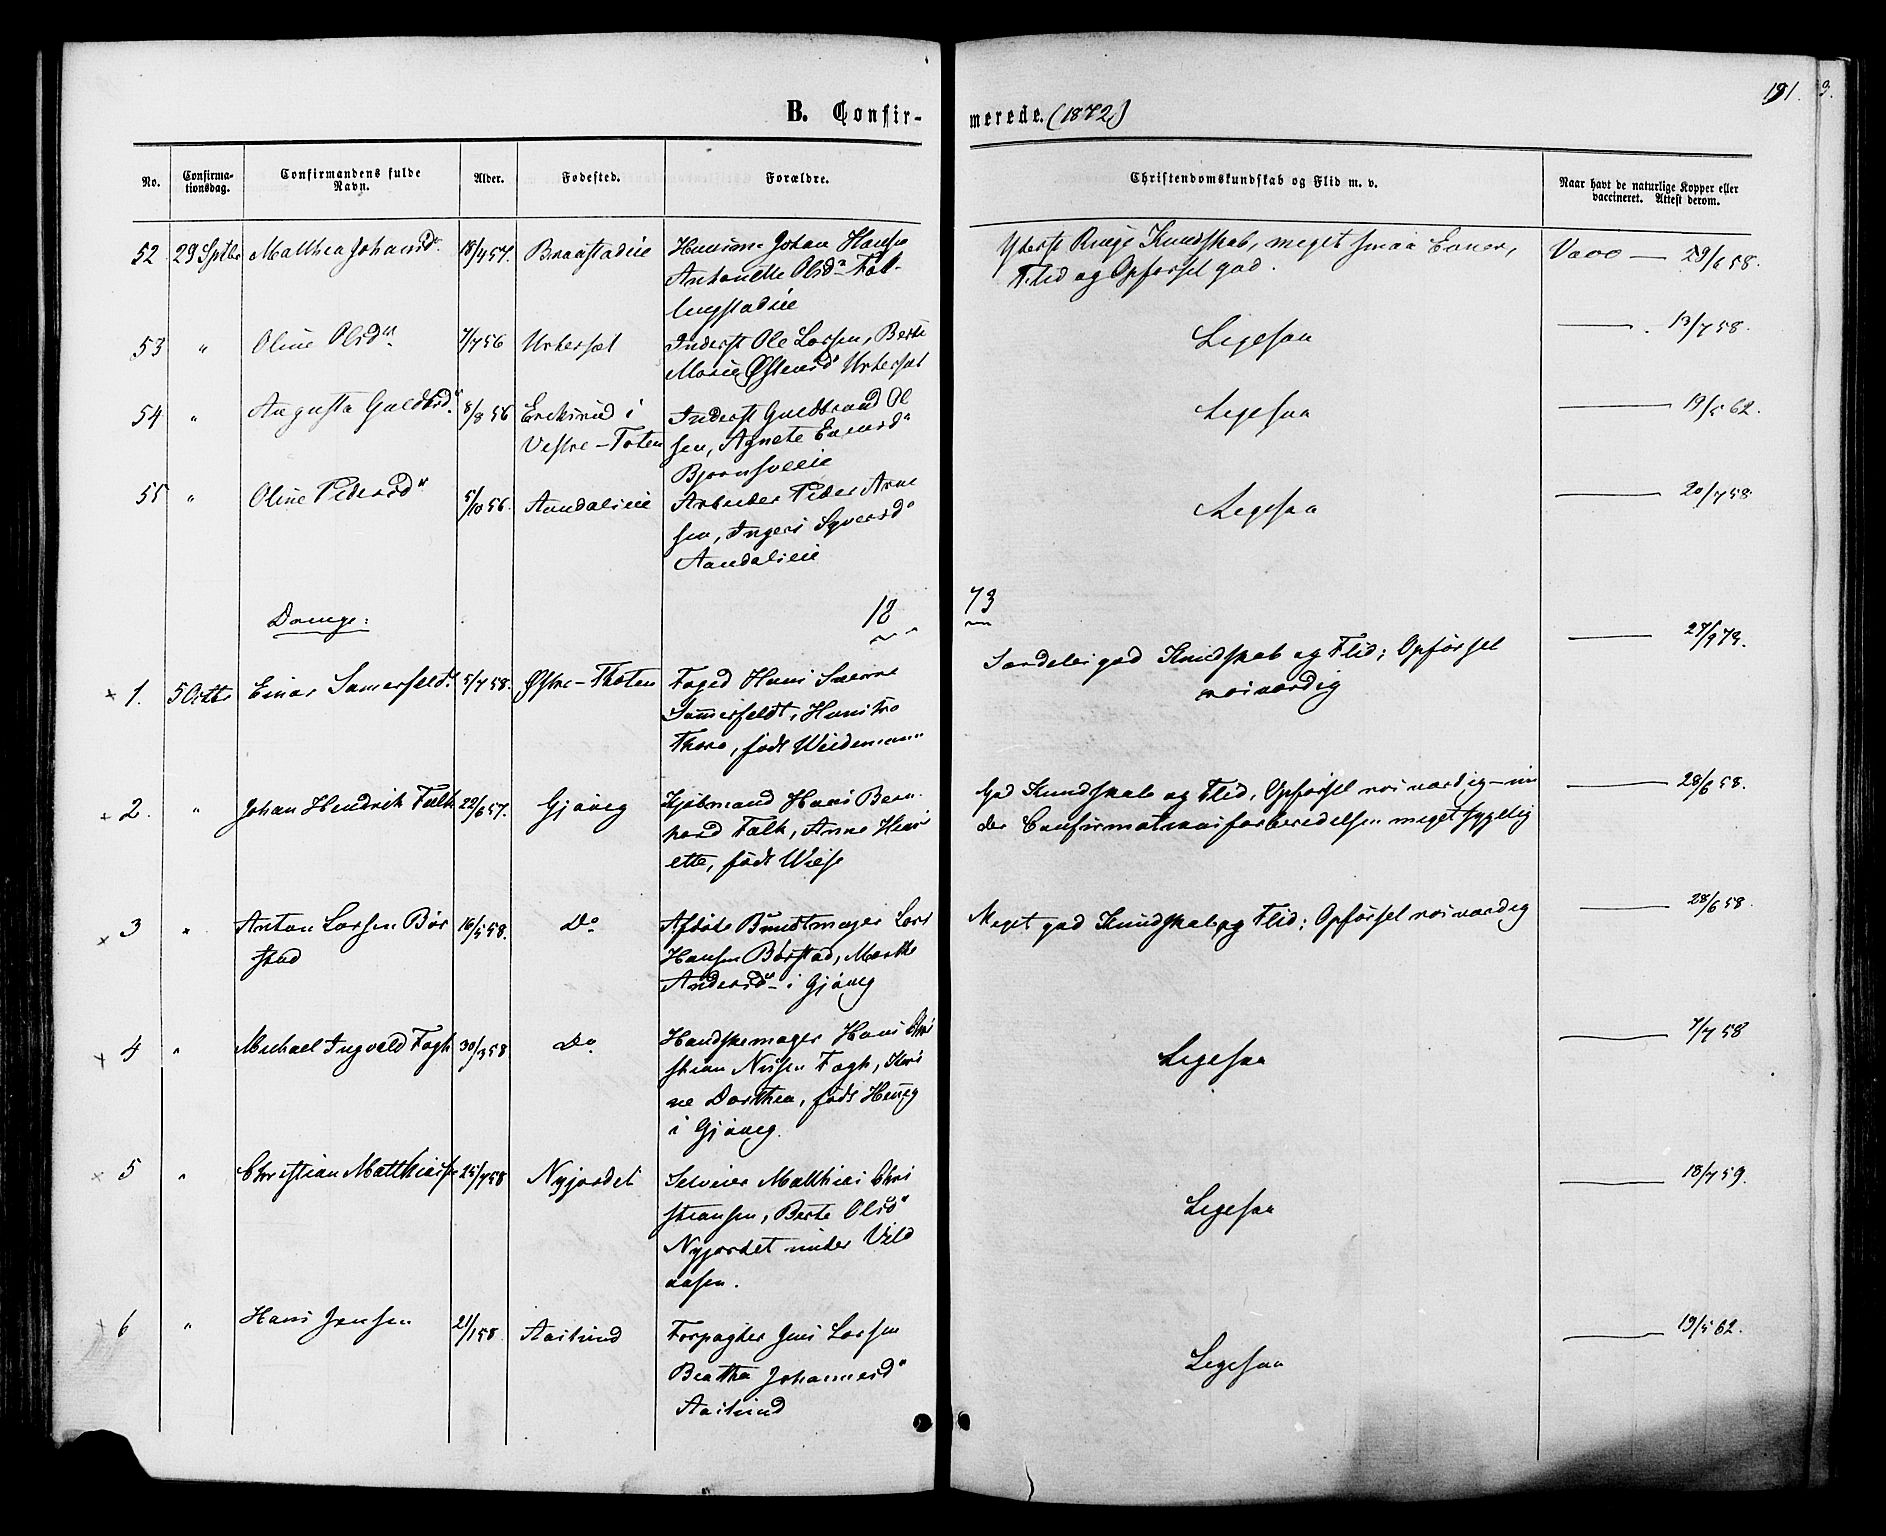 B. Confir-
merede. (1872)
191.
3.
No.
Confirma-
tionsdag.
Confirmandens fulde
Navn.
Alder.
Fødested.
Forældre.
Christendomskundskab og Flid m. v.
Naar havt de naturlige Kopper eller
vaccineret. Attest derom.
52 29 Sptbr Matthea Johansd. 18/4 57. Braastadeie Huusm. Johan Hansen
Antonette Olsd.
Yderst Ringe Kundskab, meget smaa Evner,
Flid og Opførsel god.
Vacc — 29/6 58.
53 " Oline Olsd. 7/7 56 Inderst Ole Larsen, Berte
Marie
Ligesaa — 13/7 58.
54 " Augusta Guldbrd. 8/8 56 Eriksrud i
Vestre-Toten
Inderst Guldbrand Ol
sen, Agnete Evensd
Bjørnsveeie
Ligesaa — 19/5 62.
55 " Oline Pedersd 5/10 56. Aandalseie Arbeider Peder Arne
sen, Inger Syversd
Aandalseie
Ligesaa — 20/7 58.
Drenge:
18
73
× 1. 5 Octbr Einar Sommerfeldt. 5/7 58. Østre-Thoten Foged Hans Sverre
Sommerfeldt, Hustro
Thora, født Weidemann
Særdeles god Kundskab og Flid; Opførsel
roesværdig
— 27/9 73.
× 2. " Johan Hendrik Falk 22/6 57. Gjøvig Kjøbmand Hans Bern
hard Falk, Anne Henri
ette, født Wiese
God Kundskab og Flid, Opførsel roesværdig – un
der Confirmationsforberedelsen meget sygelig
— 28/6 58.
× 3 " Anton Larsen Bør
stad
16/5 58. Do Afdøde Buntmager Lars
Hansen Børstad, Marthe
Andersd i Gjøvig
Meget god Kundskab og Flid; Opførsel roesværdig
— 28/6 58.
× 4 " Michael Ingvald Fagh 30/3 58 Do. Handskemager Hans Chri
stian Nilsen Fagh,
ne Dorthea, født
i Gjøvig.
Ligesaa — 7/7 58
× 5 " Christian Matthias 25/7 58 Nyjordet Selveier Matthias Chri
stiansen, Berte Olsd
Nyjordet under
aasen.
Ligesaa — 18/7 59.
× 6 " Hans Jensen 21/1 58 Aaslund Forpagter Jens Larsen
Beatha Johannesd
Aaslund
Ligesaa — 19/5 62.